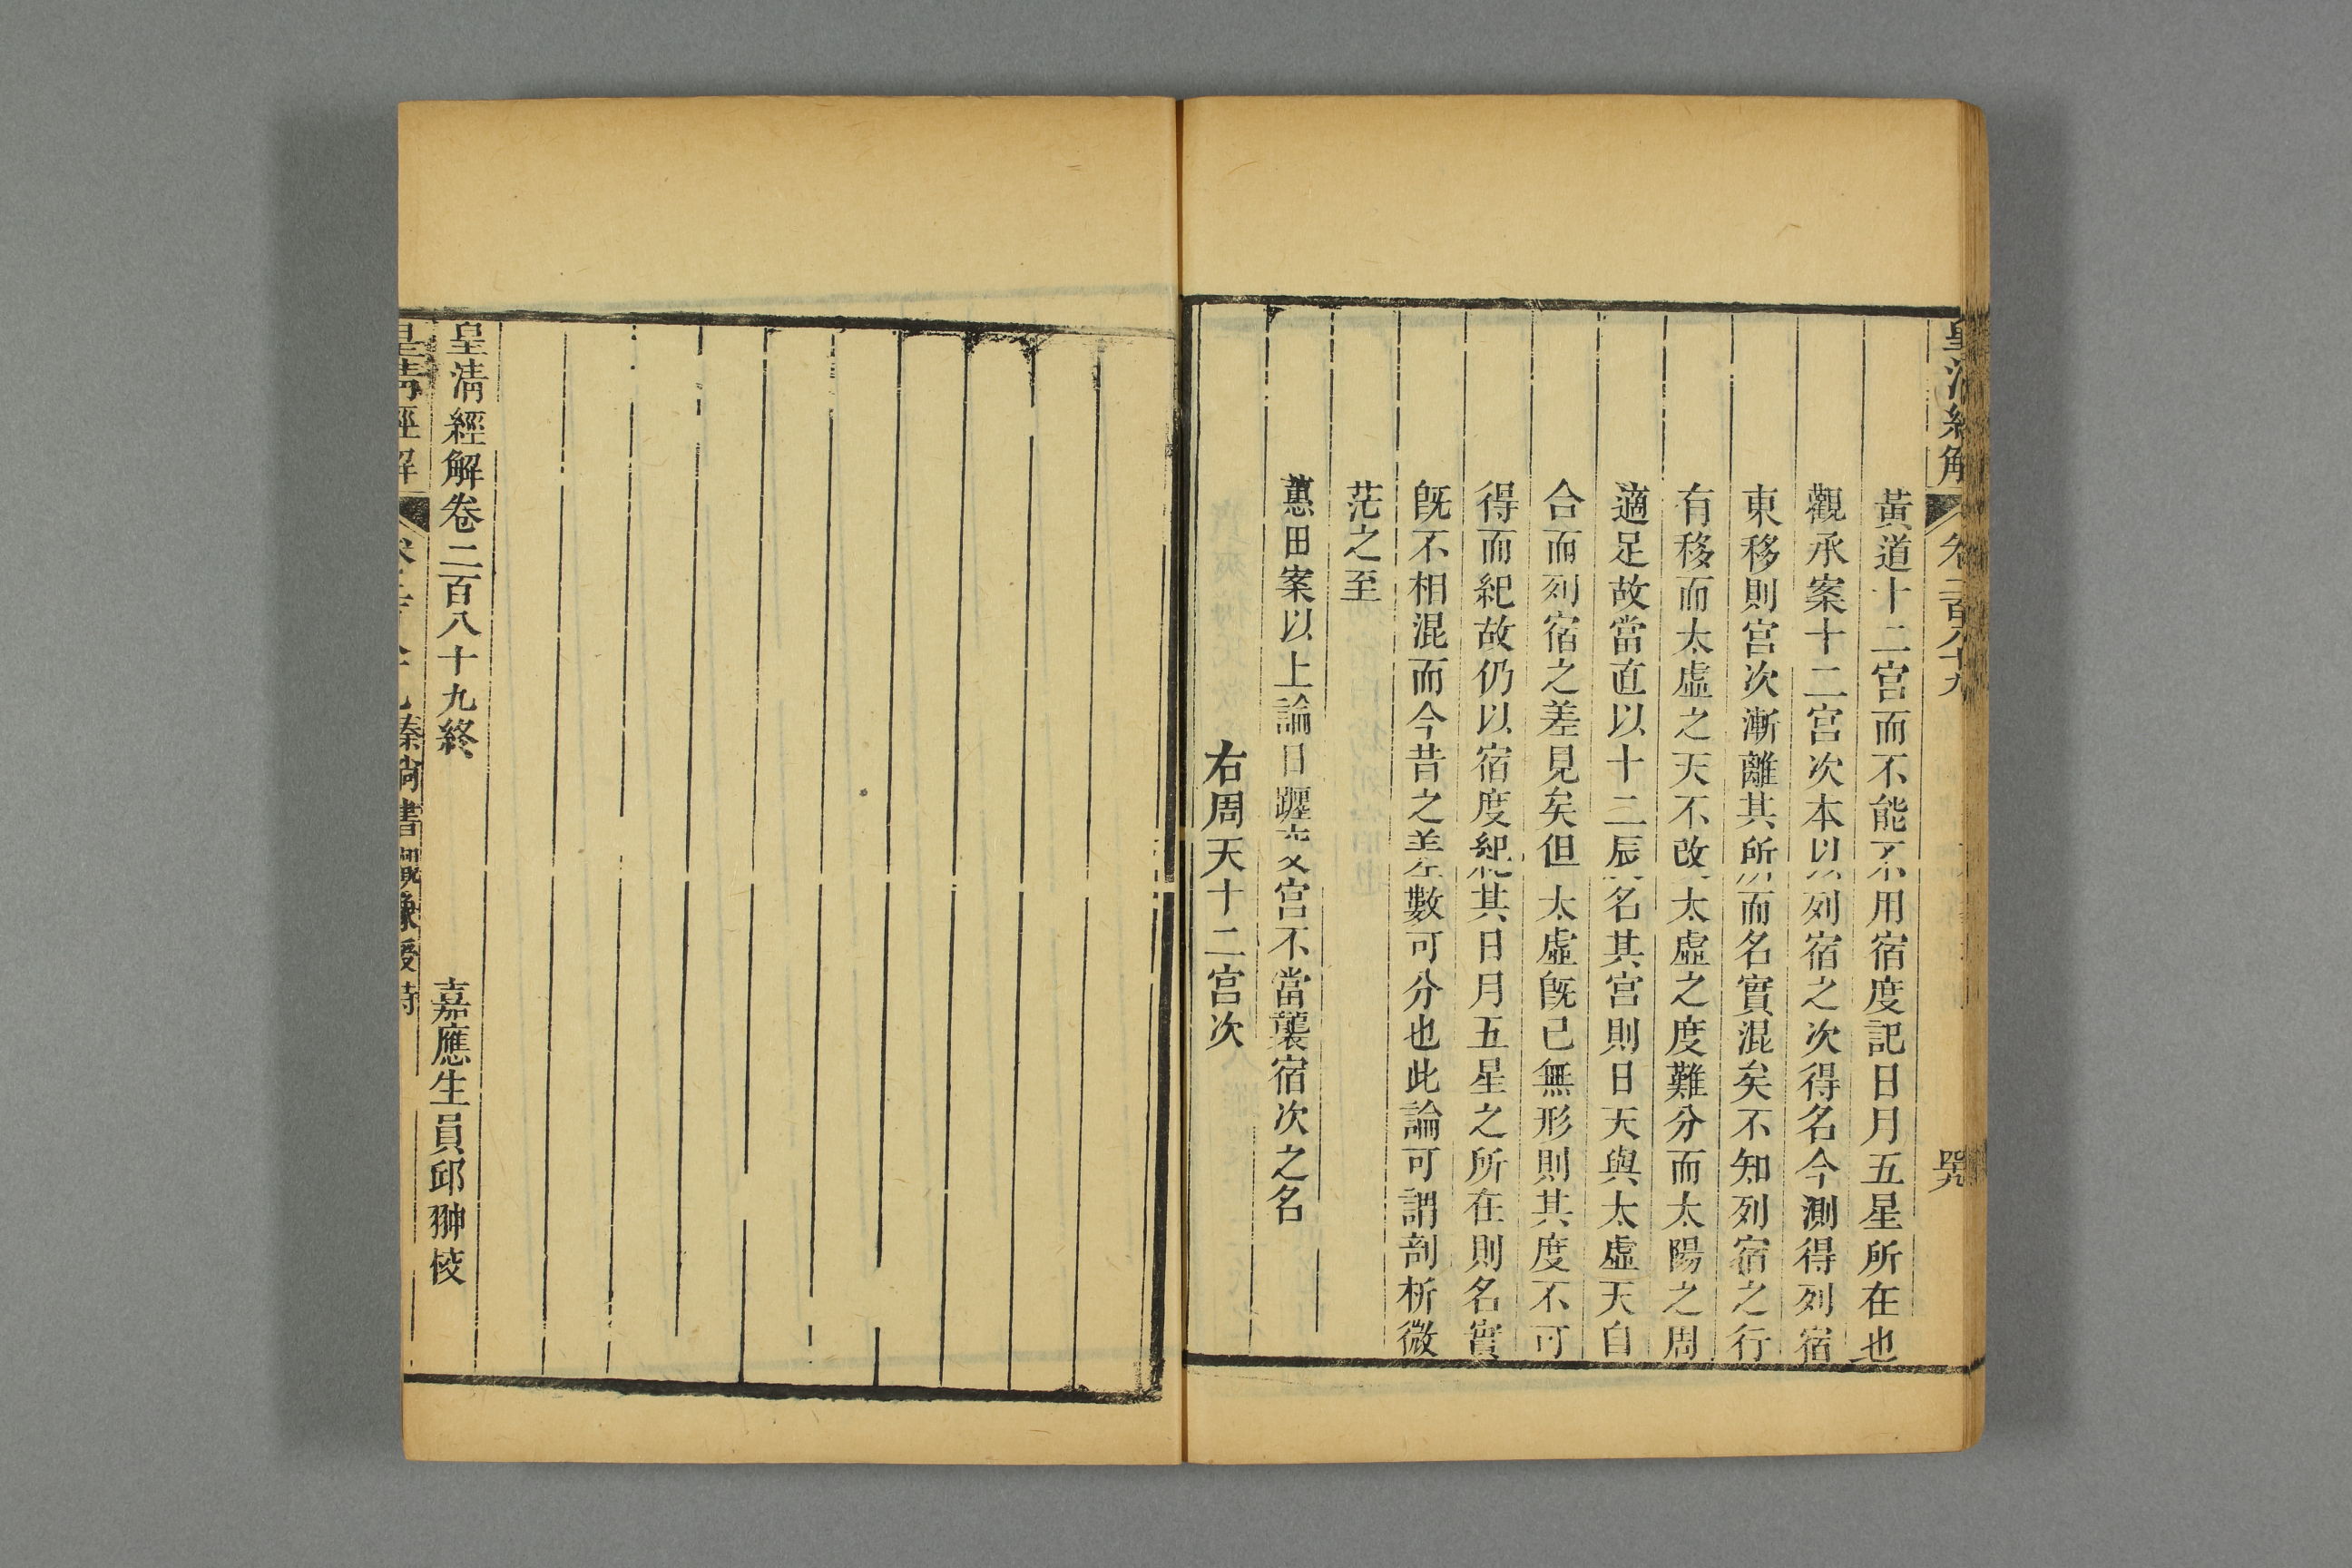 皇清經解
卷二百八十九
黃道十二宫而不能不用宿度記日月五星所在也
觀承案十二宫次本以列宿之次得名今測得列宿
東移則宫次漸離其所而名實混矣不知列宿之行
有移而太虛之天不改太虛之度難分而太陽之周
適足故當直以十二辰名其宫則日天與太虛天自
合而列宿之差見矣但太虛旣已無形則其度不可
得而紀故仍以宿度紀其日月五星之所在則名實
旣不相混而今昔之差數可分也此論可謂剖析微
茫之至
蕙田案以上論日躔交宫不當襲宿次之名
右周天十二宫次
皇清經解卷二百八十九終
嘉應生員邱翀校
皇清經解